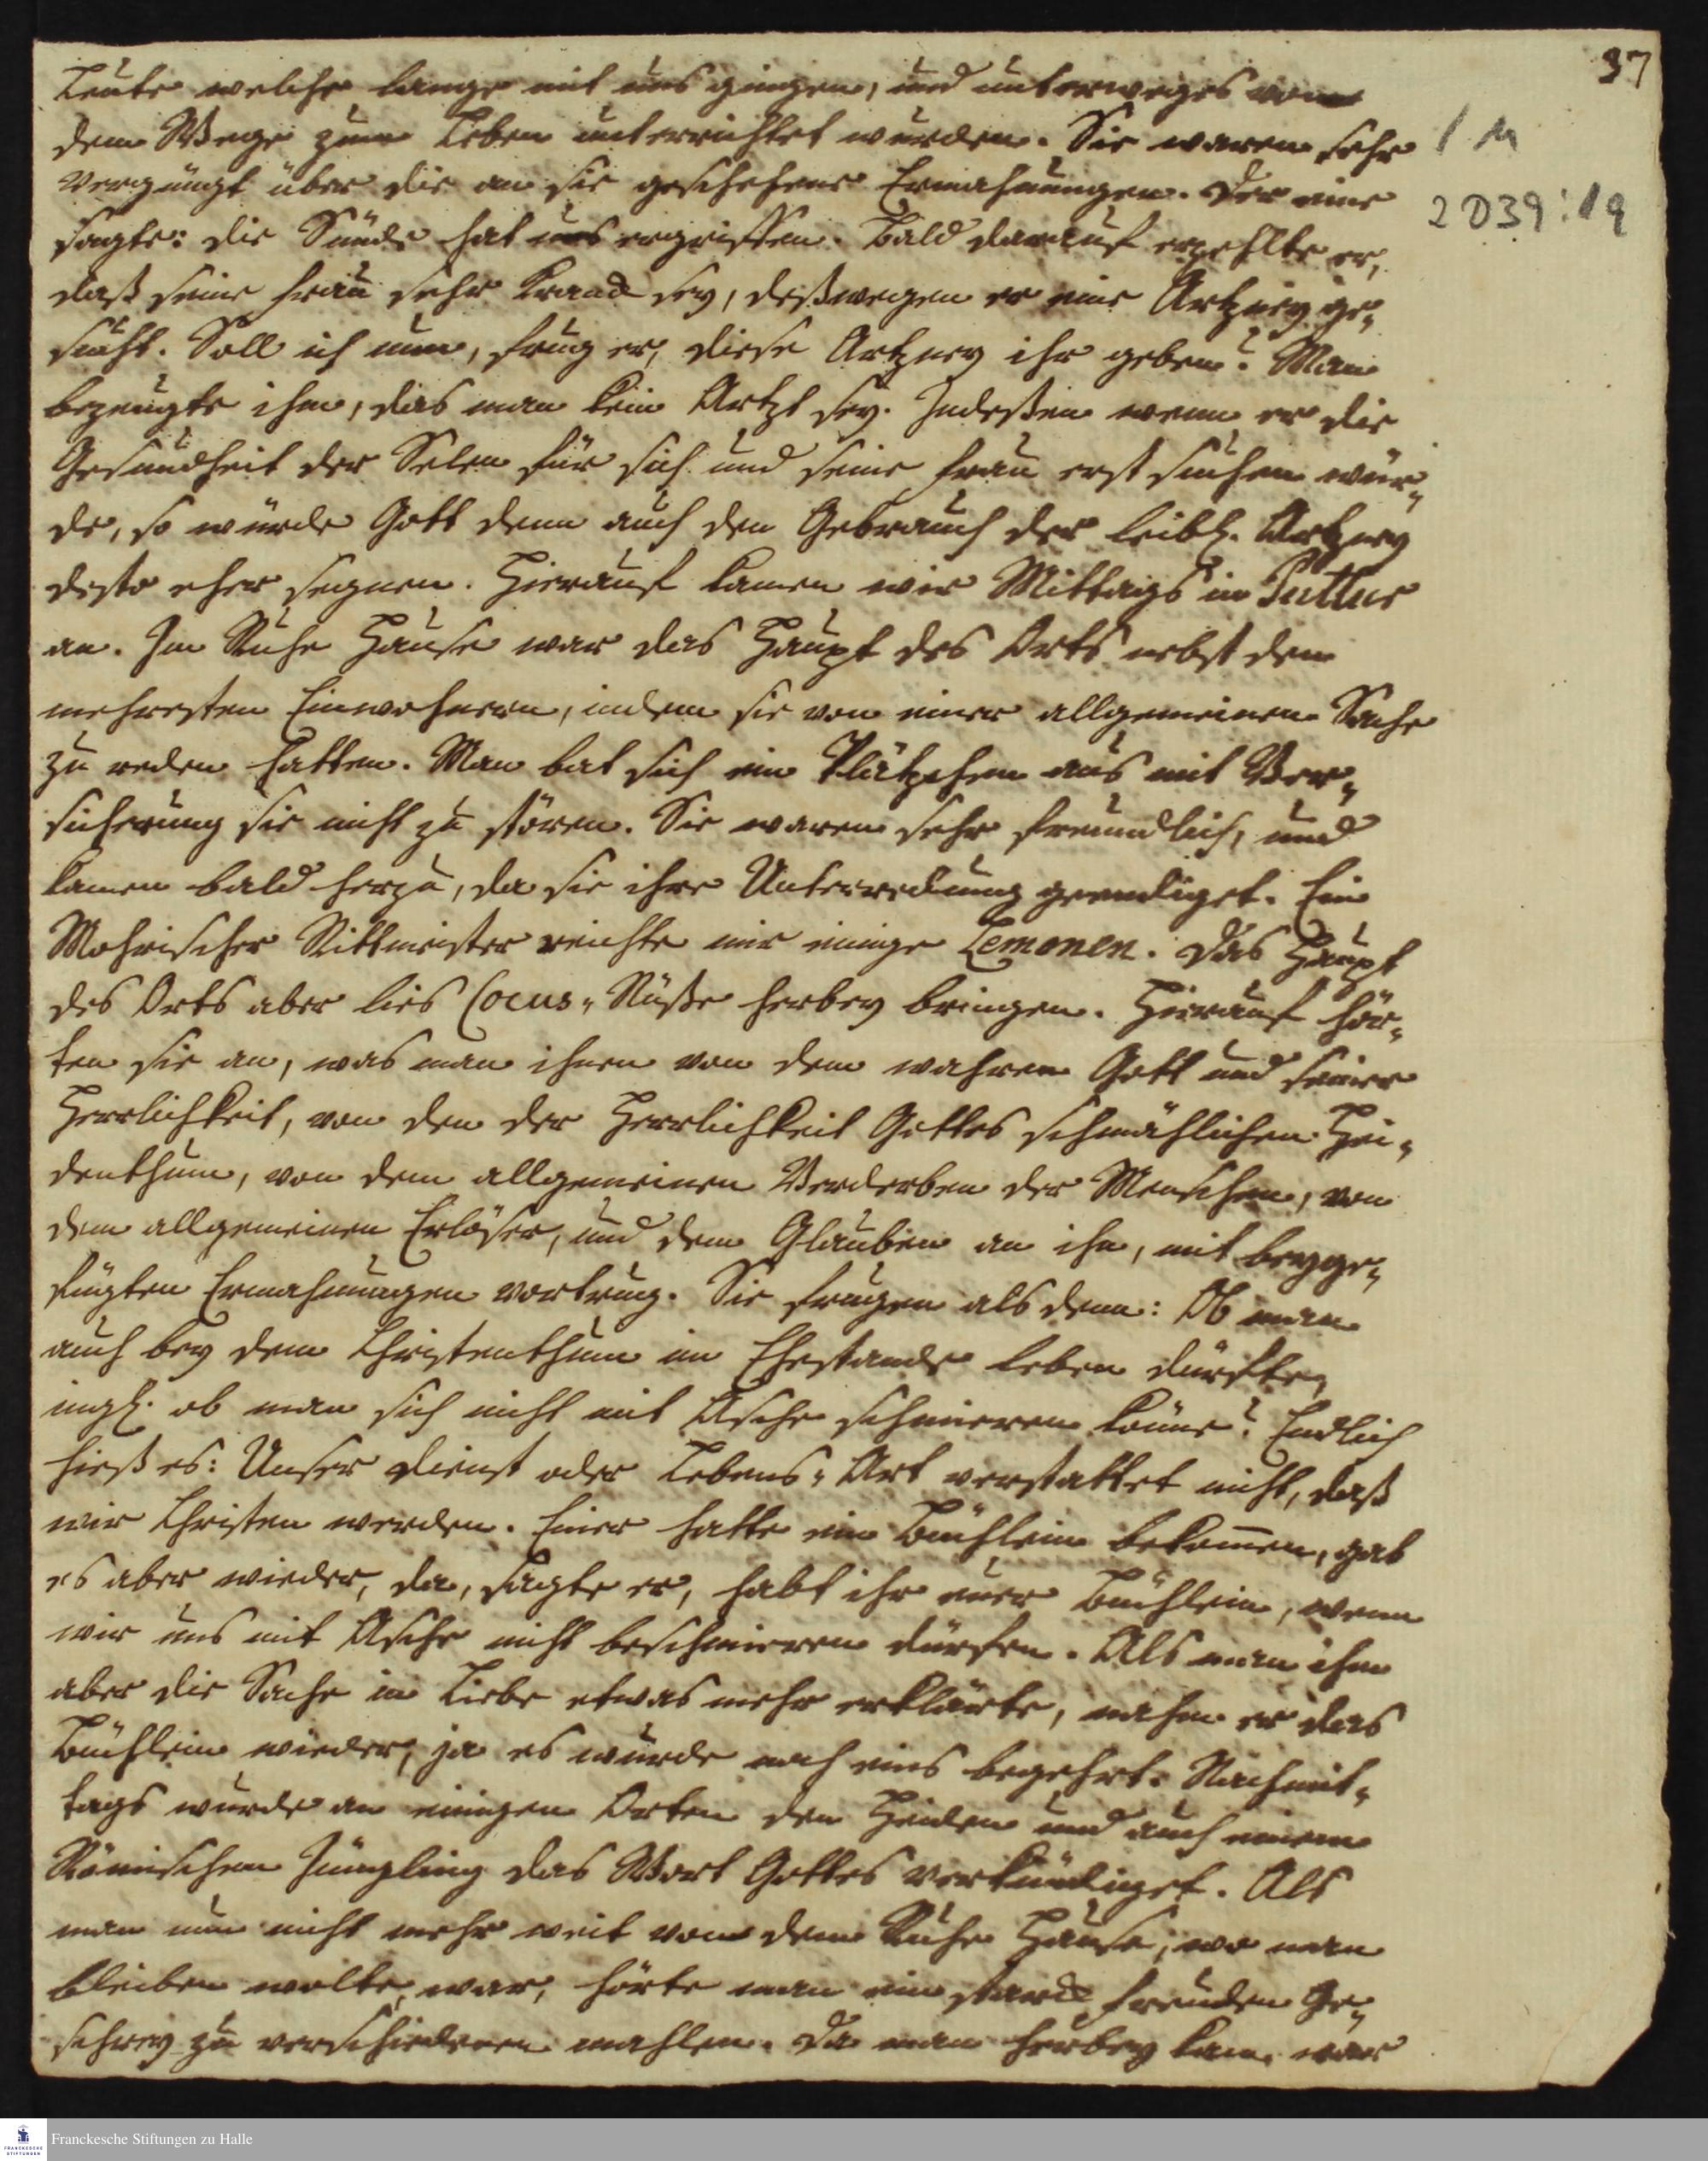 37
Leute welche lange mit uns gingen, und unterweges von
dem Wege zum Leben unterrichtet wurden. Sie waren sehr
1 M
vergnügt über die an sie geschehene Ermahnungen. Der eine
2 D39:19
sagte: die Sünde hat uns ergriffen. Bald darauf erzehlte er,
daß seine Frau sehr kranck sey, deßwegen er eine Artzney ge¬
sucht. Soll ich nun, frug er, diese Artzney ihr geben? Man
bezeugte ihm, das man kein Artzt sey. Indeßen wenn er die
Gesundheit der Selen für sich und seine Frau erst suchen wür¬
de, so würde Gott denn auch den Gebrauch der leibl. Artzney
desto eher segnen. Hierauf kamen wir Mittags in Puttur
an. Im Ruhe Hause war das Haupt des Orts nebst den
mehresten Einwohnern, indem sie von einer allgemeinen Sache
zu reden hatten. Man bat sich ein Plätzchen aus mit Ver¬
sicherung sie nicht zu stören. Sie waren sehr freundlich, und
kamen bald herzu, da sie ihre Unterredung geendiget. Ein
Mohrischer Rittmeister reichte mir einige Lemonen. Das Haupt
des Orts aber lies Cocus-Nüße herbey bringen. Hierauf hör¬
ten sie an, was man ihnen von dem wahren Gott und seiner
Herrlichkeit, von dem der Herrlichkeit Gottes schmählichen Hei¬
denthum, von dem allgemeinen Verderben der Menschen, von
dem allgemeinen Erlöser, und dem Glauben an ihn, mit beyge¬
fügten Ermahnungen vortrug. Sie frugen als denn: Ob man
auch bey dem Christenthum im Ehestande leben dürfte,
ingl. ob man sich nicht mit Asche schmieren könne? Endlich
hieß es: Unser Dienst oder Lebens-Art verstattet nicht, daß
wir Christen werden. Einer hatte ein Büchlein bekom̄en, gab
es aber wieder, da, sagte er, habt ihr euer Büchlein, wenn
wir uns mit Asche nicht beschmieren dürfen. Als man ihm
aber die Sache in Liebe etwas mehr erklärte, nahm er das
Büchlein wieder, ja es wurde noch eins begehrt. Nachmit¬
tags wurde an einigen Orten den Heiden und auch einem
Römischen Jüngling das Wort Gottes verkündiget. Als
man nun nicht mehr weit von dem Ruhe Hause, wo man
bleiben wolte, war, hörte man ein starck Freuden Ge¬
schrey zu verschiedenen mahlen. Da man herbey kam, war
Franckesche Stiftungen zu Halle